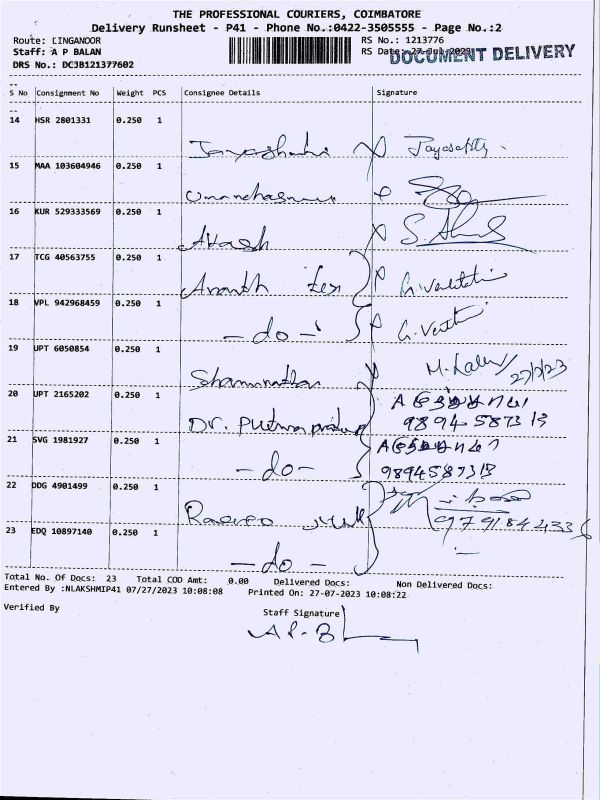 THE PROFESSIONAL COURIERS, COIMBATORE
Delivery Runsheet - P41 - Phone No.:0422-3505555 - Page No.:2
Route: LINGANOOR RS No.: 1213776
Staff: A P BALAN RS Date: 27-Jul-2023
DOCUMENT DELIVERY
DRS No.: DCJB121377602
S No Consignment No Weight PCS Consignee Details Signature
14 HSR 2801331 0.250 1
15 MAA 103604946 0.250 1
16 KUR 529333569 0.250 1
Akash
17 TCG 40563755 0.250 1
Ananth Tex
18 VPL 942968459 0.250 1
- do -
19 UPT 6050854 0.250 1
27/7/23
20 UPT 2165202 0.250 1
Dr.
98945873 13
21 SVG 1981927 0.250 1
- do -
9894587313
22 DDG 4901499 0.250 1
23 EDQ 10897140 0.250 1
- do -
Total No. Of Docs: 23 Total COD Amt: 0.00 Delivered Docs: Non Delivered Docs:
Entered By :NLAKSHMIP41 07/27/2023 10:08:08 Printed On: 27-07-2023 10:08:22
Verified By Staff Signature
A P. B